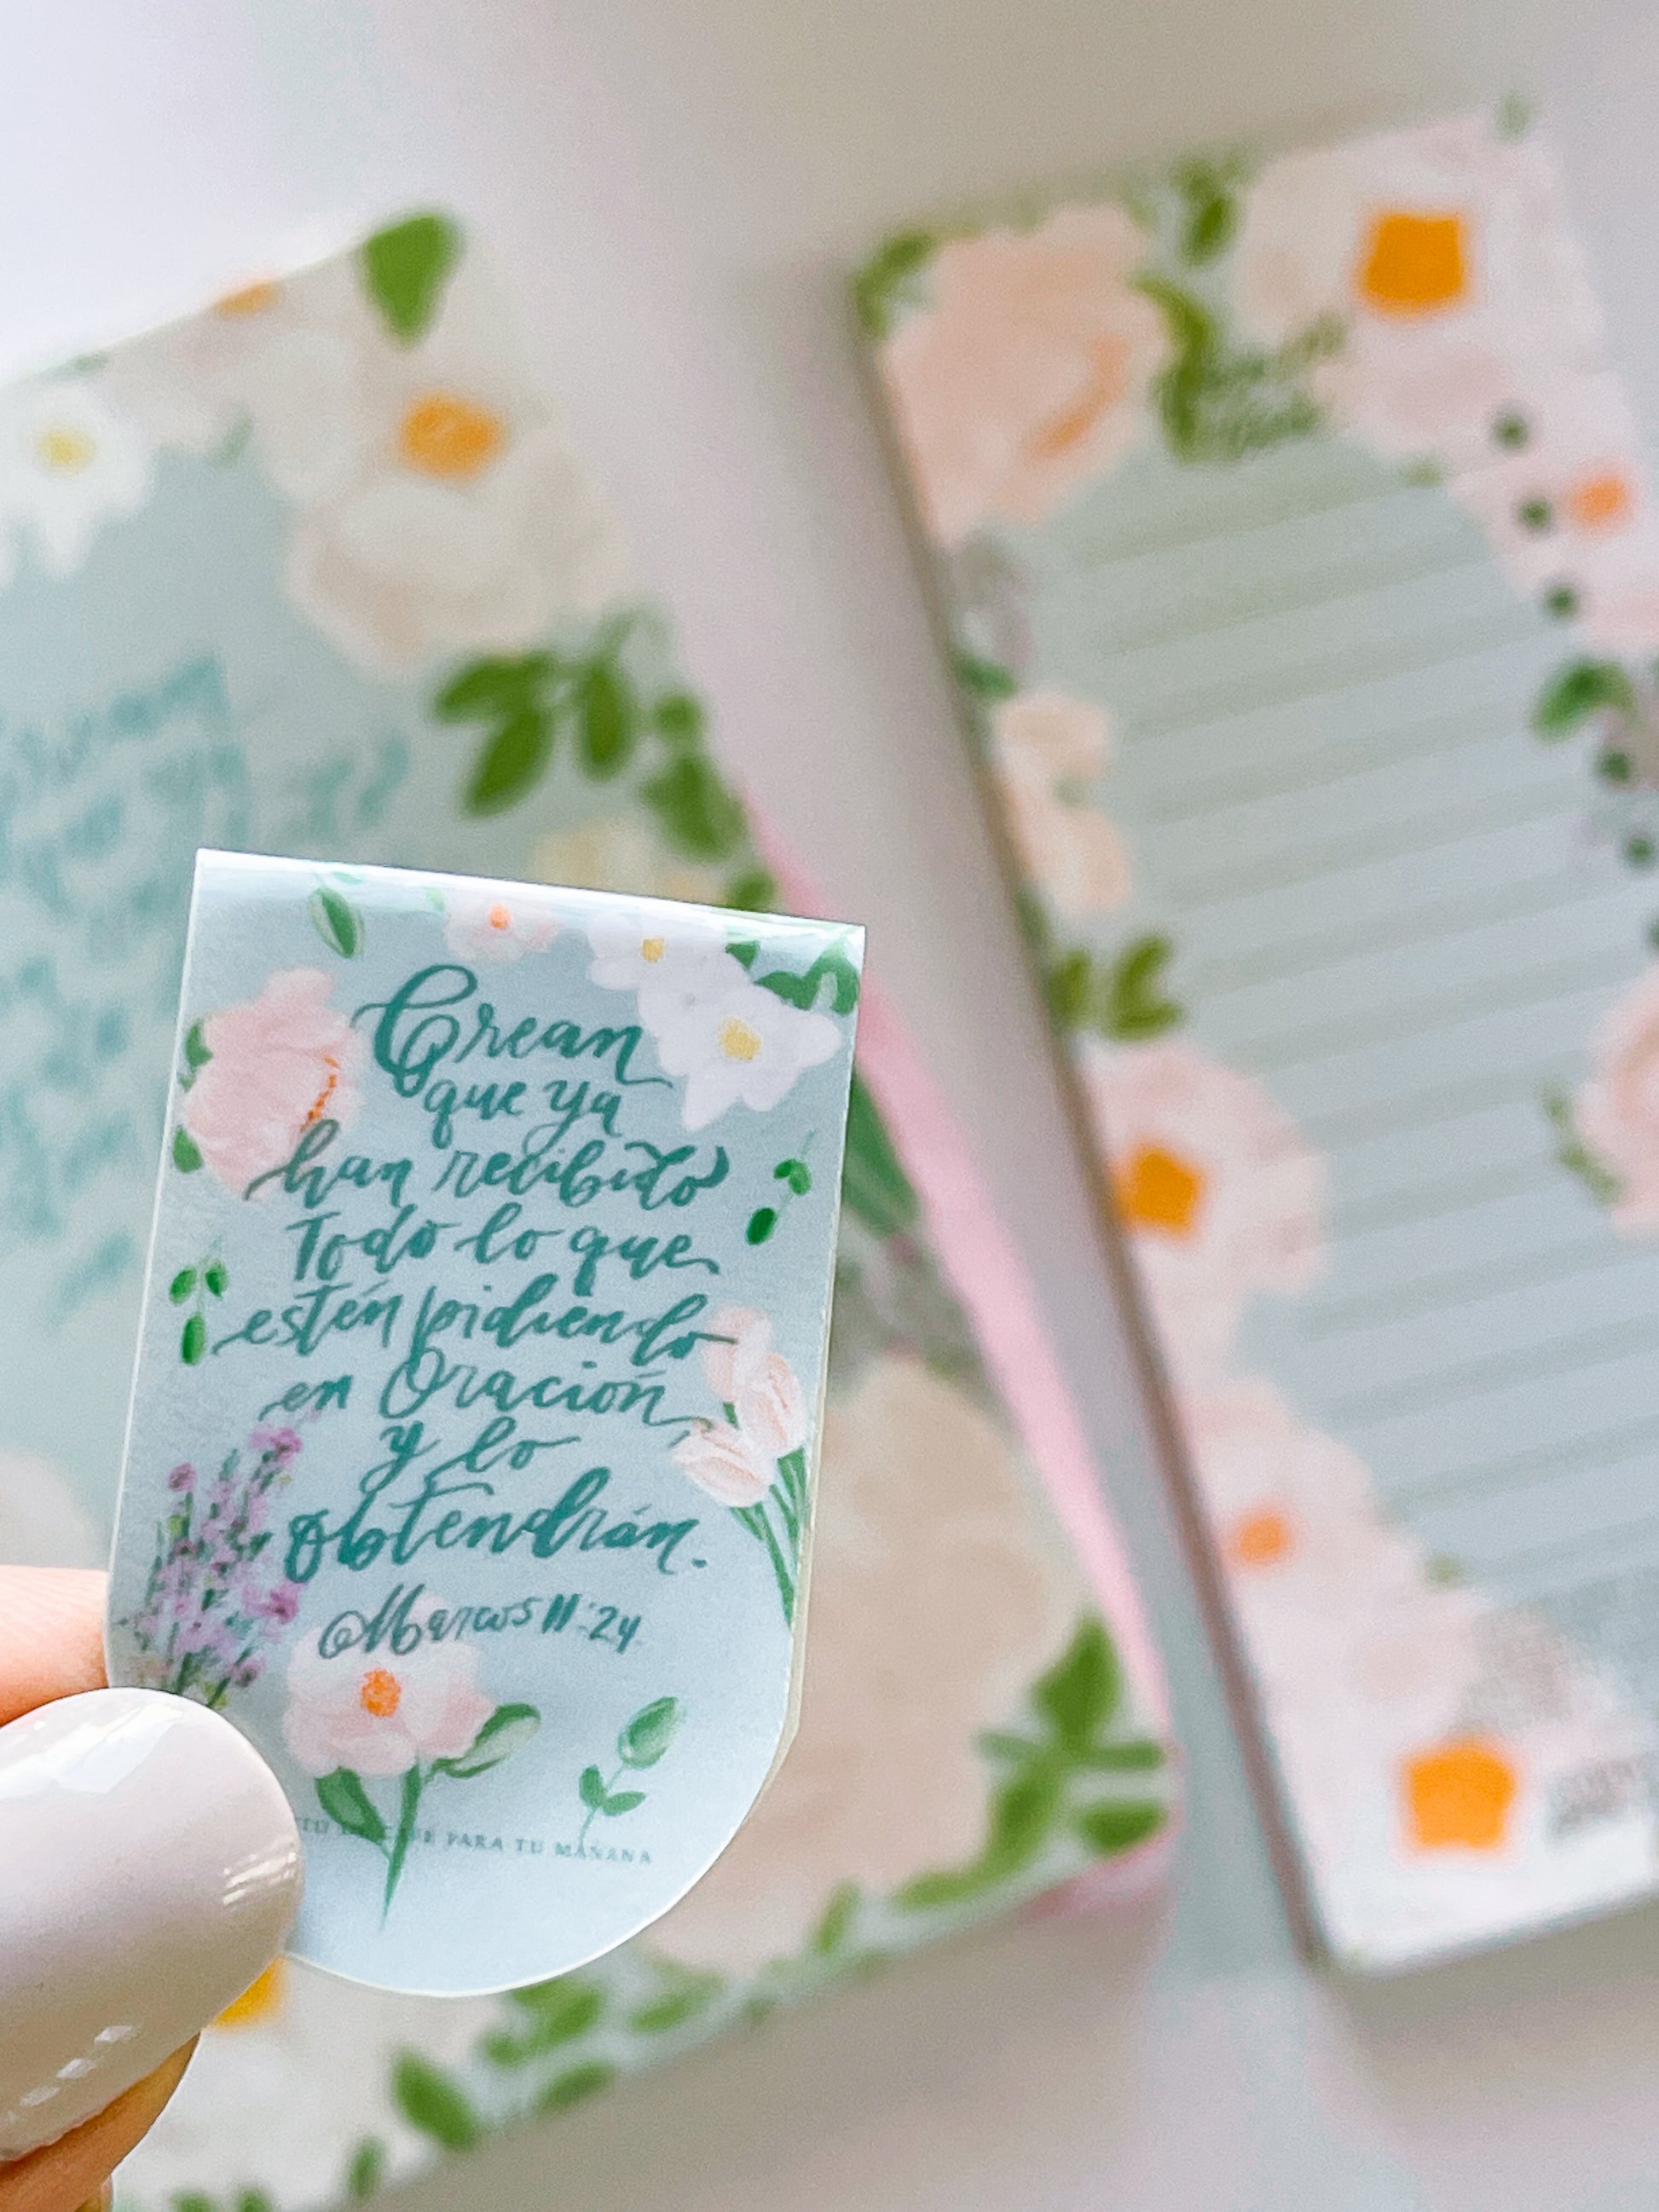 Crean
que ya
han recibido
Todo lo que
estén pidiendo
en Oración
y lo
obtendrán.
Marcos 11:24
TU PARA TU MAÑANA